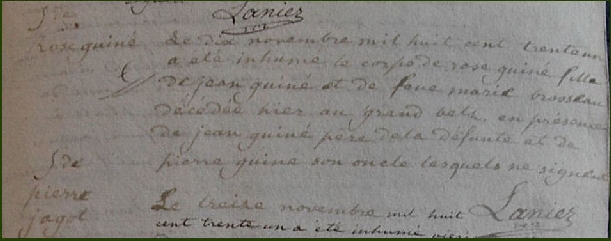 Lanier
S. de
Rose quiné
Le dix novembre mil huit cent trente un
a été inhumé le corps de rose quiné fille
de jean quiné et de feue marie brosseau
décédée hier au grand bels, en présence
de jean quiné père de la défunte et de
pierre quiné son oncle lesquels ne signent
S. de
pierre
jagot
Lanier
Le treise novembre mil huit
cent trente un a été inhumé